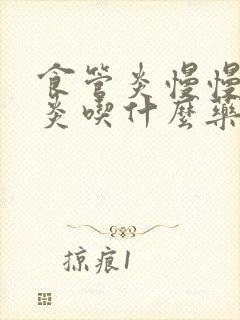 食管炎慢慢
炎喫什麼藥
掠痕1